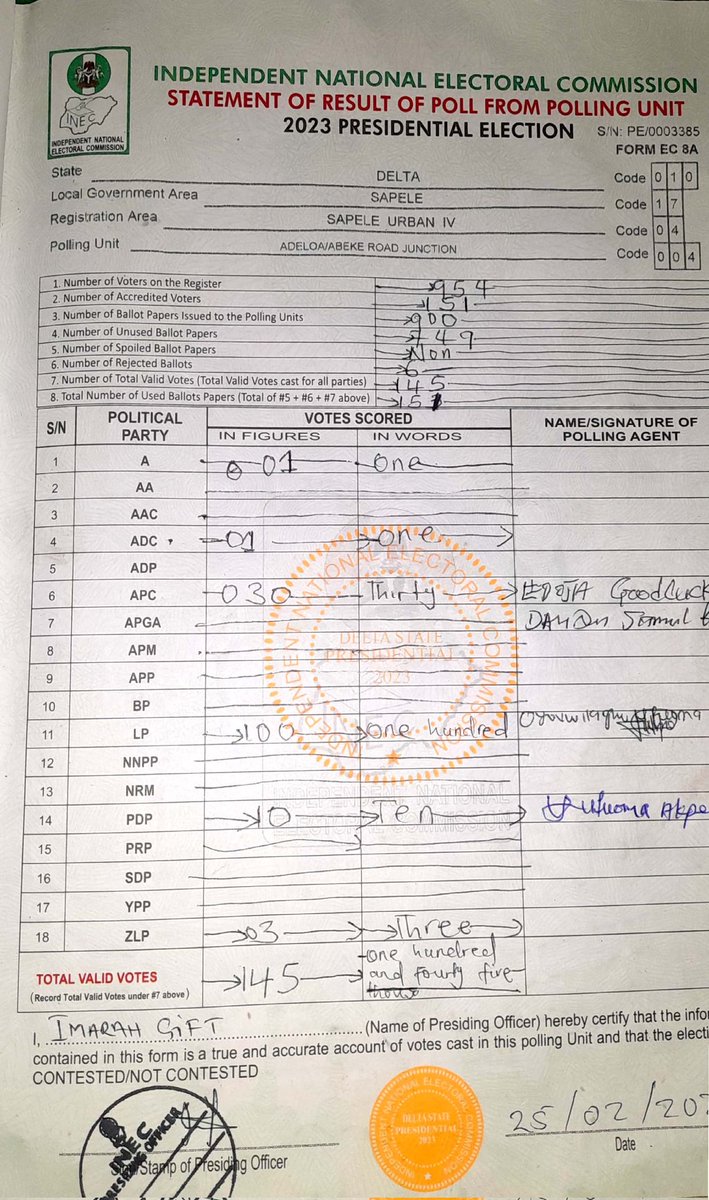 INDEPENDENT NATIONAL ELECTORAL COMMISSION
STATEMENT OF RESULT OF POLL FROM POLLING UNIT
2023 PRESIDENTIAL ELECTION S/N: PE/0003385
FORM EC 8A
INEC
INDEPENDENT NATIONAL
ELECTORAL COMMISSION
State DELTA Code 0 1 0
Local Government Area SAPELE Code 1 7
Registration Area SAPELE URBAN IV Code 0 4
Polling Unit ADELOA/ABEKE ROAD JUNCTION Code 0 0 4
1. Number of Voters on the Register 954
2. Number of Accredited Voters 151
3. Number of Ballot Papers Issued to the Polling Units 900
4. Number of Unused Ballot Papers 749
5. Number of Spoiled Ballot Papers Non
6. Number of Rejected Ballots 6
7. Number of Total Valid Votes (Total Valid Votes cast for all parties) 145
8. Total Number of Used Ballots Papers (Total of #5 + #6 + #7 above) 151
S/N POLITICAL PARTY VOTES SCORED NAME/SIGNATURE OF POLLING AGENT
IN FIGURES IN WORDS
1 A 0 01 one
2 AA
3 AAC
4 ADC 01 one
5 ADP
6 APC 030 Thirty Goodluck
7 APGA
8 APM
9 APP
10 BP
11 LP 100 one hundred
12 NNPP
13 NRM
14 PDP 10 Ten Akpe
15 PRP
16 SDP
17 YPP
18 ZLP 03 Three
TOTAL VALID VOTES 145 one hundred and fourty five
(Record Total Valid Votes under #7 above)
INDEPENDENT NATIONAL ELECTORAL COMMISSION
DELTA STATE
PRESIDENTIAL
2023
INDEPENDENT NATIONAL
ELECTORAL COMMISSION
I, IMARAH GIFT (Name of Presiding Officer) hereby certify that the
contained in this form is a true and accurate account of votes cast in this polling Unit and that the
CONTESTED/NOT CONTESTED
INEC
PRESIDING OFFICER
Stamp of Presiding Officer
INDEPENDENT NATIONAL ELECTORAL COMMISSION
DELTA STATE
PRESIDENTIAL
2023
25/02/
Date